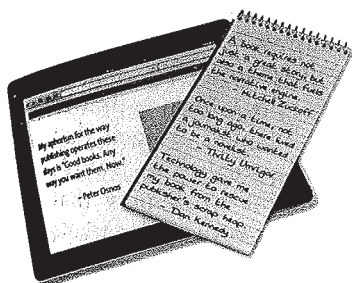 My aphorism for the way
publishing operates these
days is "Good books. Any
way you want them. Now."
– Peter Osnos
A book requires not
just a great story, but
also a theme that fuels
the narrative engine.
Mitchell Zuckoff
Once upon a time, not
too long ago, there lived
a journalist who wanted
to be a novelist.
Thrity Umrigar
Technology gave me
the power to rescue
my book from the
publisher's scrap heap.
Dan Kennedy